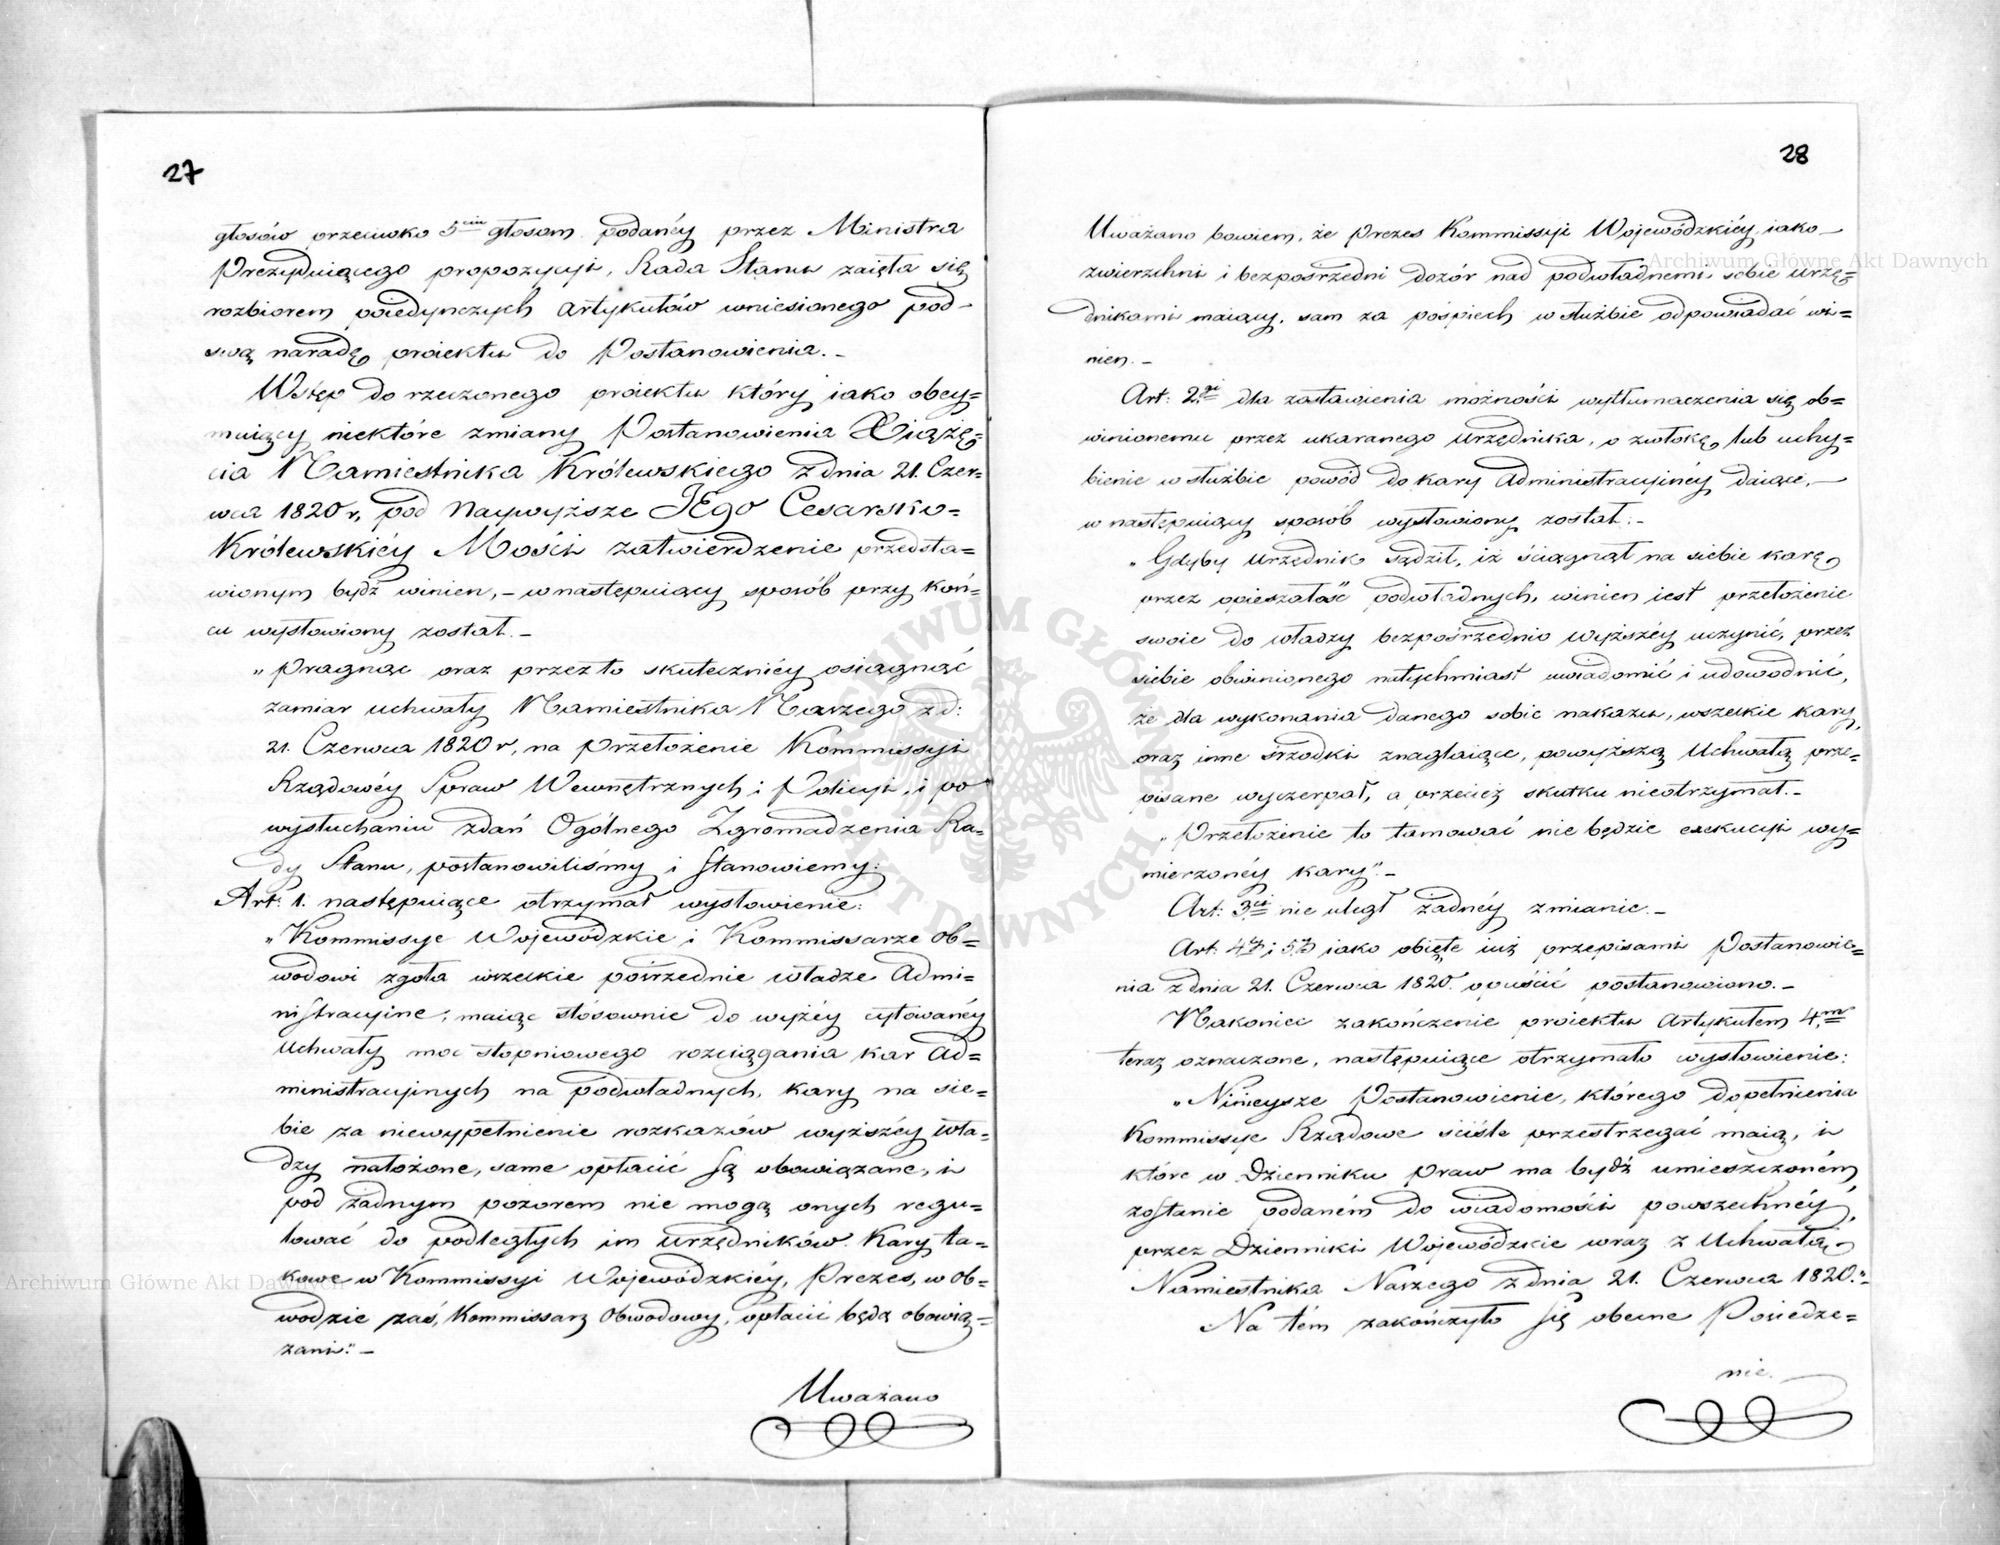 27
głosów przeciwko 5ciu głosom podanéy przez Ministra
Prezyduiącego propozycyi, Rada Stanu zaięła się
rozbiorem poiedynczych artykułów wniesionego pod
swą naradę proiektu do Postanowienia.-
Wstęp do rzeczonego proiektu który iako obey=
muiący niektóre zmiany Postanowienia Xiążę=
cia Namiestnika Królewskiego z dnia 21. Czer=
wca 1820 r, pod Naywyższe JEgo Cesarsko=
Królewskiéy Mości zatwierdzenie przedsta=
wionym bydź winien, - w następuiący sposób przy koń=
cu wysłowiony został.-
„Pragnąc oraz przez to skuteczniéy osiągnąć
zamiar uchwały Namiestnika Naszego z d:
21. Czerwca 1820 r, na przełożenie Kommissyi
Rządowéy Spraw Wewnętrznych i Policyi, i po
wysłuchaniu zdań Ogólnego Zgromadzenia Ra=
dy Stanu, postanowiliśmy i stanowiemy:
Art: 1. następuiące otrzymał wysłowienie:
„Kommissye Wojewódzkie i Kommissarze Ob=
wodowi zgoła wszelkie pośrzednie władze Admi=
nistracyine, maiąc stósownie do wyżéy cytowanéy
Uchwały moc stopniowego rozciągania kar Ad=
ministracyinych na podwładnych, kary na sie=
bie za niewypełnienie rozkazów wyższéy wła=
dzy nałożone, same opłacić są obowiązane, i
pod żadnym pozorem nie mogą onych regu=
lować do podległych im urzędników. Kary ta=
kowe w Kommissyi Wojewódzkiéy, Prezes, w ob=
wodzie zaś, Kommissarz Obwodowy, opłacić będą obowią=
zani."-
Uważano
28
Uważano bowiem, że Prezes Kommissyi Wojewódzkiéy, iako
zwierzchni i bezpośrzedni dozór nad podwładnemi sobie urzę=
dnikami maiący, sam za pośpiech w służbie odpowiadać wi=
nien.-
Art: 2gi dla zostawienia możności wytłumaczenia się ob=
winionemu przez ukaranego urzędnika, o zwłokę lub uchy=
bienie w służbie powód do kary Administracyinéy daiące,-
w następuiący sposób wysłowiony został:-
„Gdyby urzędnik sądził, iż ściągnął na siebie karę
przez opieszałość podwładnych, winien iest przełożenie
swoie do władzy bezpośrzednio wyższéy uczynić, przez
siebie obwinionego natychmiast uwiadomić i udowodnić,
że dla wykonania danego sobie nakazu, wszelkie kary,
oraz inne śrzodki znaglaiące, powyższą Uchwałą prze=
pisane wyczerpał, a przecież skutku nieotrzymał.-
„Przełożenie to tamować nie będzie exekucyi wy=
mierzonéy kary".-
Art: 3ci nie uległ żadnéy zmianie.-
Art: 4ty i 5ty iako obięte iuż przepisami Postanowie=
nia z dnia 21. Czerwca 1820. opuścić postanowiono.-
Nakoniec zakończenie proiektu Artykułem 4.m
teraz oznaczone, następuiące otrzymało wysłowienie:
„Ninieysze Postanowienie, którego dopełnienia
Kommissye Rządowe ściśle przestrzegać maią, i
które w Dzienniku Praw ma bydź umieszczoném,
zostanie podaném do wiadomości powszechnéy,
przez Dzienniki Wojewódzkie wraz z Uchwałą
Namiestnika Naszego z dnia 21. Czerwca 1820."-
Na tém zakończyło się obecne Posiedze=
nie.
Archiwum Główne Akt Dawnych
Archiwum Główne Akt Dawnych
ARCHIWUM GŁÓWNE AKT DAWNYCH